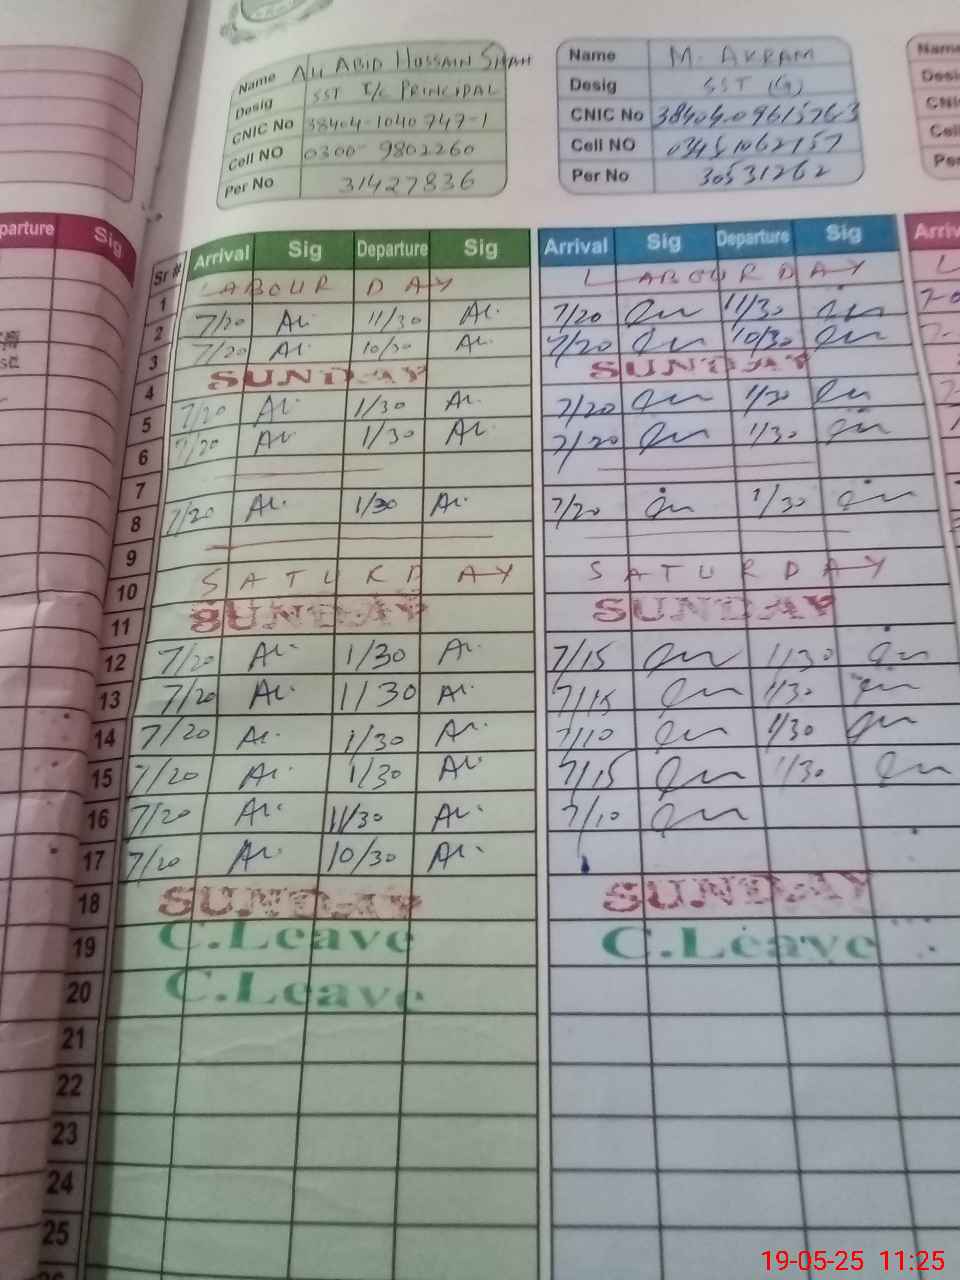 Name ALI ABID HUSSAIN SHAH
Desig SST I/C PRINCIPAL
CNIC No 38404-1040747-1
Cell NO 0300-9802260
Per No 31427836
Name M. AKRAM
Desig SST (G)
CNIC No
Cell NO 03451062157
Per No 30531262
Name
Desig
CNIC
Cell
Per
parture Sig
Sr # Arrival Sig Departure Sig Arrival Sig Departure Sig Arriv
1 LABOUR DAY LABOUR DAY L
2 7/20 11/30 7/20 11/30
3 7/20 10/30 7/20 10/30
4 SUNDAY SUNDAY
5 7/20 1/30 7/20 1/30
6 7/20 1/30 7/20 1/30
7
8 7/20 1/30 7/20 1/30
9
10 SATURDAY SATURDAY
11 SUNDAY SUNDAY
12 7/20 1/30 7/15 1/30
13 7/20 1/30 7/15 1/30
14 7/20 1/30 7/10 1/30
15 7/20 1/30 7/15 1/30
16 7/20 11/30 7/10
17 7/20 10/30
18 SUNDAY SUNDAY
19 C.Leave C.Leave
20 C.Leave
21
22
23
24
25
19-05-25 11:25